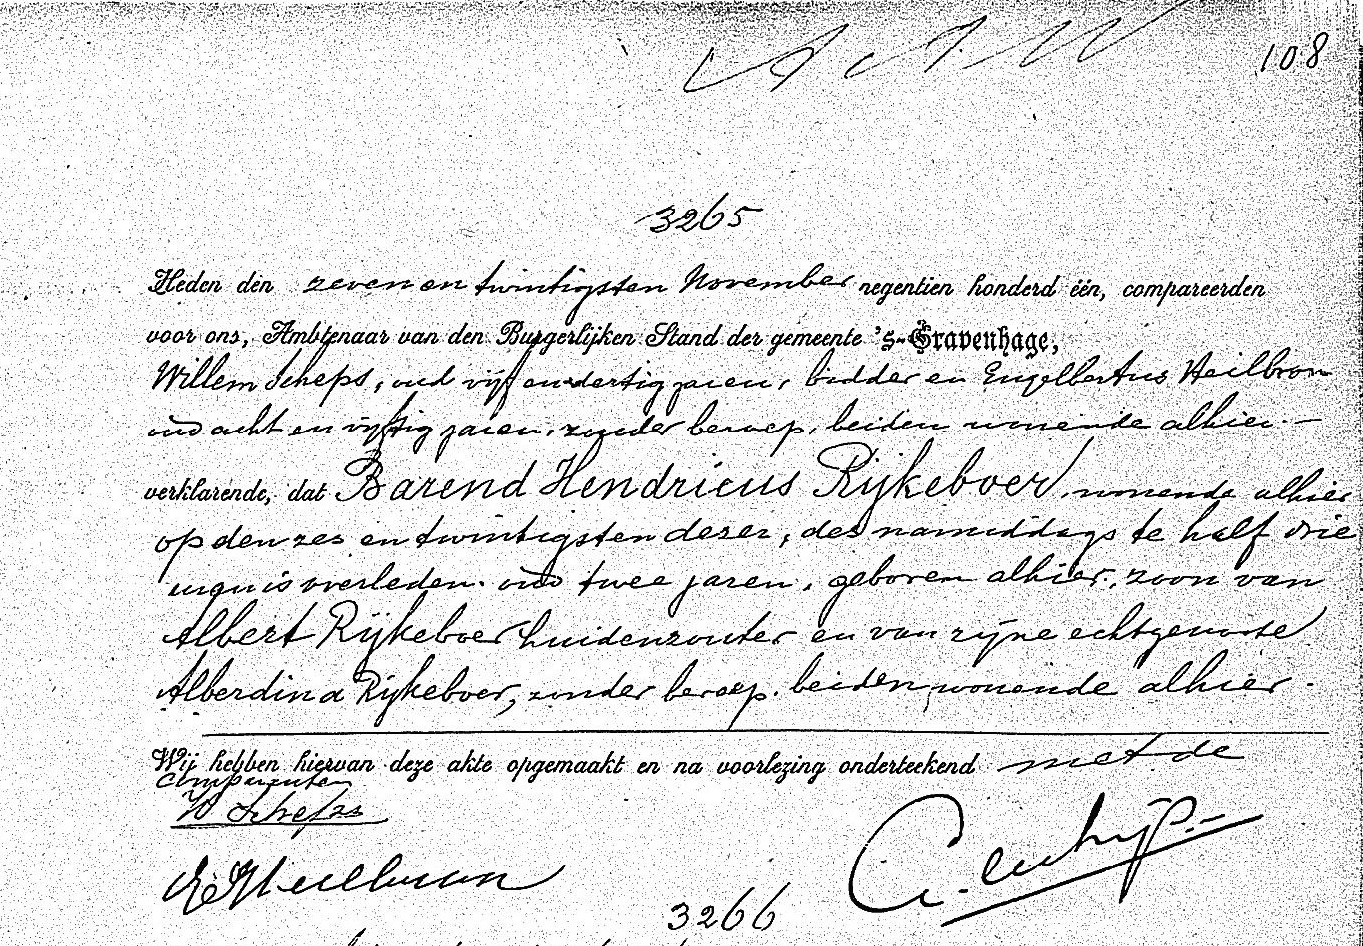 108
3265
Heden den zeven en twintigsten November negentien honderd één, compareerden
voor ons, Ambtenaar van den Burgerlijken Stand der gemeente 's-Gravenhage,
Willem Scheps, oud vijf en dertig jaren, bidder en Engelbertus Heilbron
oud acht en vijftig jaren, zonder beroep, beiden wonende alhier.—
verklarende, dat Barend Hendricus Rijkeboer, wonende alhier
op den zes en twintigsten dezer, des namiddags te half drie
ure is overleden. oud twee jaren, geboren alhier, zoon van
Albert Rijkeboer huidenzouter en van zijne echtgenoote
Alberdina Rijkeboer, zonder beroep. beiden wonende alhier.
Wij hebben hiervan deze akte opgemaakt en na voorlezing onderteekend met de
comparanten
W Scheps
E. Heilbron
3266